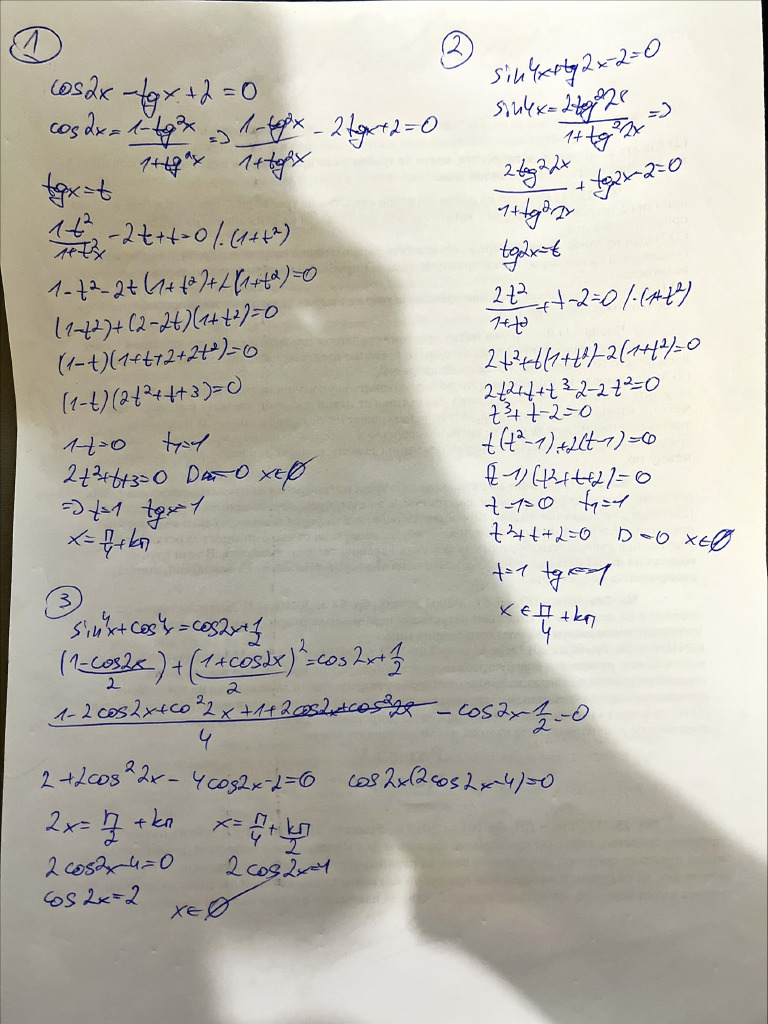 1
cos2x - tgx + 2 = 0
cos2x = (1-tg²x)/(1+tg²x) => (1-tg²x)/(1+tg²x) - 2tgx + 2 = 0
tgx = t
(1-t²)/(1+t²x) - 2t + t = 0 /·(1+t²)
1-t²-2t(1+t²)+2(1+t²)=0
(1-t²)+(2-2t)(1+t²)=0
(1-t)(1+t+2+2t²)=0
(1-t)(2t²+t+3)=0
1-t=0 t₁=1
2t²+t+3=0 D=0 x∈∅
=> t=1 tgx=1
x=π/4+kπ
2
sin4x+tg2x-2=0
sin4x=2tg²2x/(1+tg²2x) =>
2tg²2x/(1+tg²2x) + tg2x-2=0
tg2x=t
2t²/(1+t²)+t-2=0 /·(1+t²)
2t²+t(1+t²)-2(1+t²)=0
2t²+t+t³-2-2t²=0
t³+t-2=0
t(t²-1)+2(t-1)=0
(t-1)(t²+t+2)=0
t-1=0 t₁=1
t²+t+2=0 D=0 x∈∅
t=1 tgx=1
x∈π/4+kπ
3
sin⁴x+cos⁴x=cos2x+1/2
((1-cos2x)/2)+((1+cos2x)/2)²=cos2x+1/2
(1-2cos2x+co²2x+1+2cos2x+cos²2x)/4 - cos2x-1/2=0
2+2cos²2x-4cos2x-2=0 cos2x(2cos2x-4)=0
2x=π/2+kπ x=π/4+kπ/2
2cos2x-4=0 2cos2x=4
cos2x=2 x∈∅